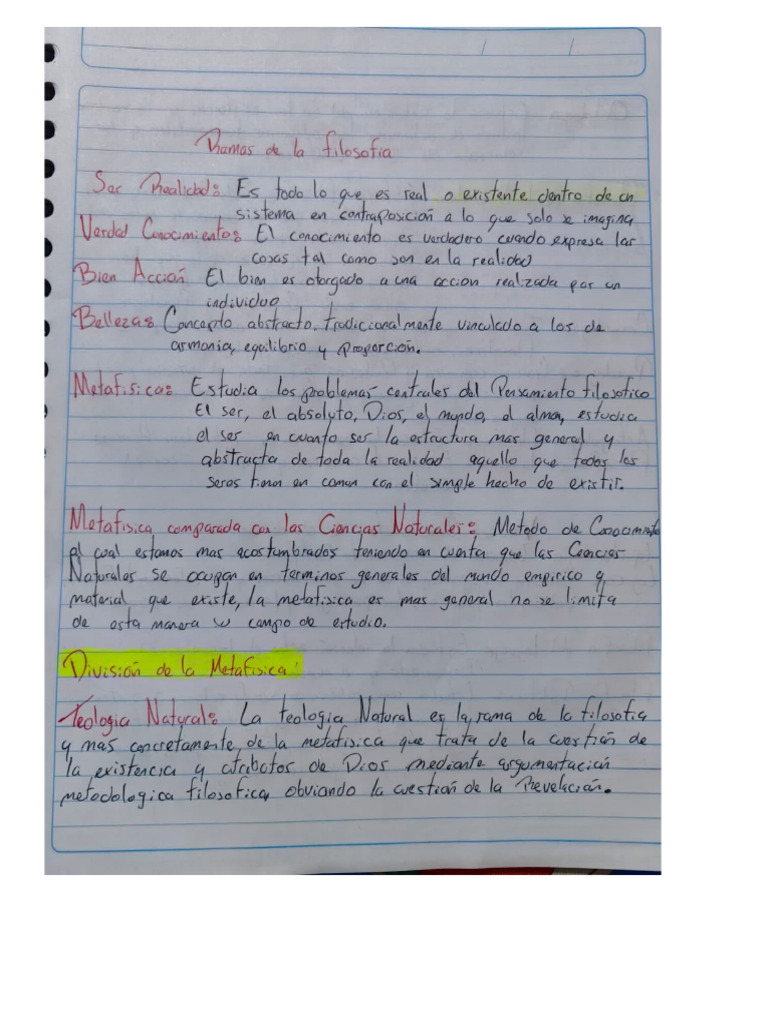 / /
Ramas de la filosofia
Ser Realidad: Es todo lo que es real o existente dentro de un
sistema en contraposición a lo que solo se imagina
Verdad Conocimientos: El conocimiento es verdadero cuando expresa las
cosas tal como son en la realidad
Bien Acción El bien es otorgado a una accion realizada por un
individuo
Belleza: Concepto abstracto, tradicionalmente vinculado a los de
armonia, equilibrio y proporción.
Metafisica: Estudia los problemas centrales del Pensamiento filosofico
El ser, el absoluto, Dios, el mundo, el alma, estudia
el ser en cuanto ser la estructura mas general y
abstracta de toda la realidad aquello que todos los
seres tienen en comun con el simple hecho de existir.
Metafisica comparada con las Ciencias Naturales: Metodo de Conocimiento
el cual estamos mas acostumbrados teniendo en cuenta que las Ciencias
Naturales se ocupan en terminos generales del mundo empirico y
material que existe, la metafisica es mas general no se limita
de esta manera su campo de estudio.
División de la Metafisica:
Teologia Natural: La teologia Natural es la rama de la filosofia
y mas concretamente, de la metafisica que trata de la cuestión de
la existencia y atributos de Dios mediante argumentación
metodologica filosofica, obviando la cuestión de la Revelación.